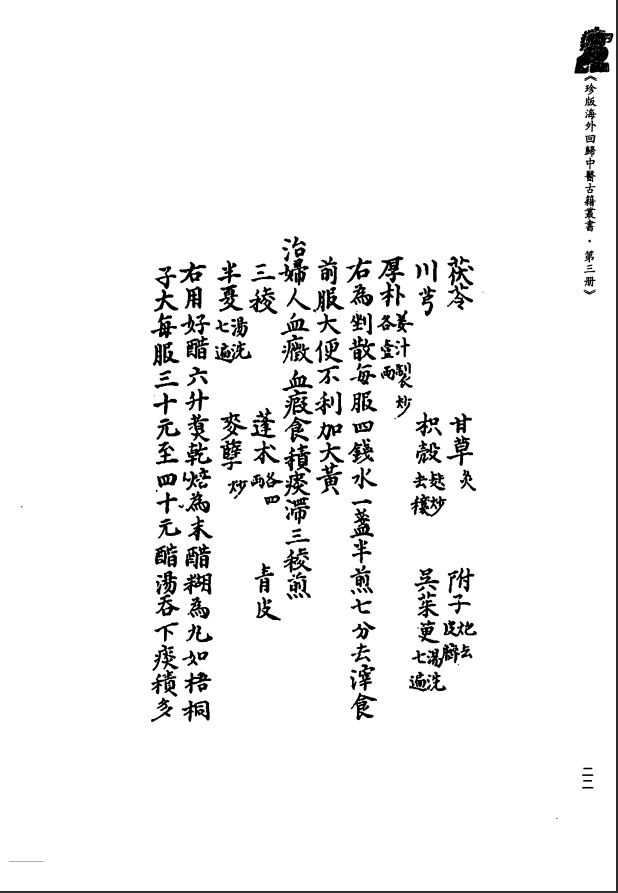 《珍版海外回歸中醫古籍叢書·第三册》
茯苓 甘草炙 附子炮去皮臍
川芎 枳殼麩炒去穰 吳茱萸湯洗七遍
厚朴姜汁製炒各壹兩
右為剉散每服四錢水一盞半煎七分去滓食
前服大便不利加大黃
治婦人血癥血瘕食積痰滯三稜煎
三稜 蓬朮各四兩 青皮
半夏湯洗七遍 麥孽炒
右用好醋六升煑乾焙為末醋糊為丸如梧桐
子大每服三十元至四十元醋湯吞下痰積多
二二